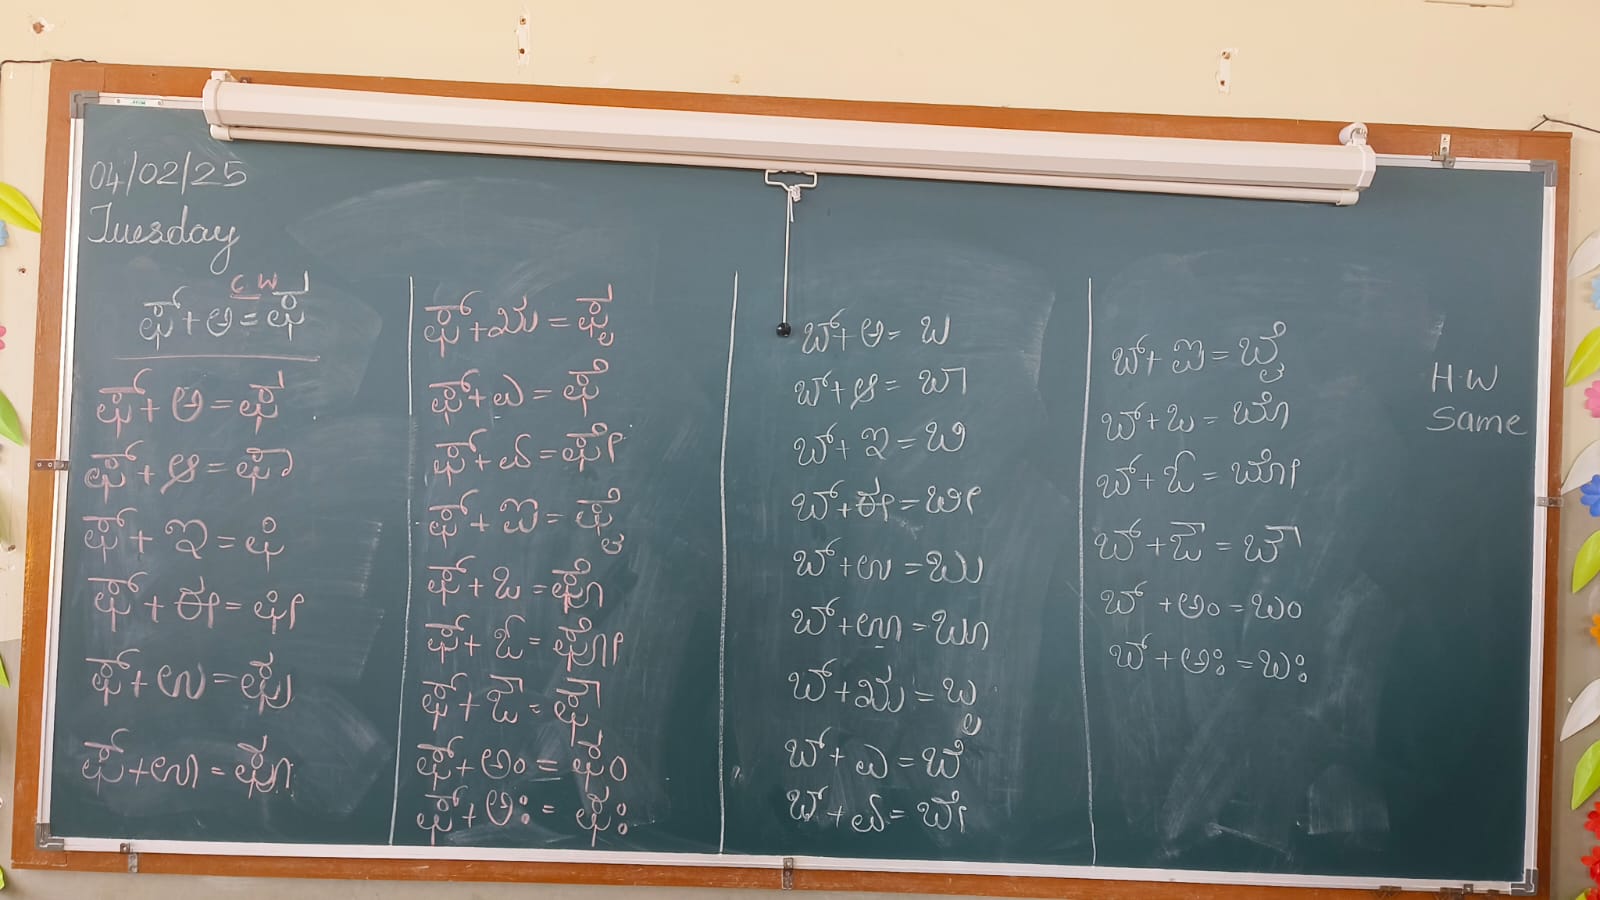 04/02/25
Tuesday
C W
ಫ್+ಅ=ಫ
ಫ್+ಅ=ಫ
ಫ್+ಆ=ಫಾ
ಫ್+ಇ=ಫಿ
ಫ್+ಈ=ಫೀ
ಫ್+ಉ=ಫು
ಫ್+ಊ=ಫೂ
ಫ್+ಋ=ಫೃ
ಫ್+ಎ=ಫೆ
ಫ್+ಏ=ಫೇ
ಫ್+ಐ=ಫೈ
ಫ್+ಒ=ಫೊ
ಫ್+ಓ=ಫೋ
ಫ್+ಔ=ಫೌ
ಫ್+ಅಂ=ಫಂ
ಫ್+ಅಃ=ಫಃ
ಬ್+ಅ=ಬ
ಬ್+ಆ=ಬಾ
ಬ್+ಇ=ಬಿ
ಬ್+ಈ=ಬೀ
ಬ್+ಉ=ಬು
ಬ್+ಊ=ಬೂ
ಬ್+ಋ=ಬೃ
ಬ್+ಎ=ಬೆ
ಬ್+ಏ=ಬೇ
ಬ್+ಐ=ಬೈ
ಬ್+ಒ=ಬೊ
ಬ್+ಓ=ಬೋ
ಬ್+ಔ=ಬೌ
ಬ್+ಅಂ=ಬಂ
ಬ್+ಅಃ=ಬಃ
H.W
Same